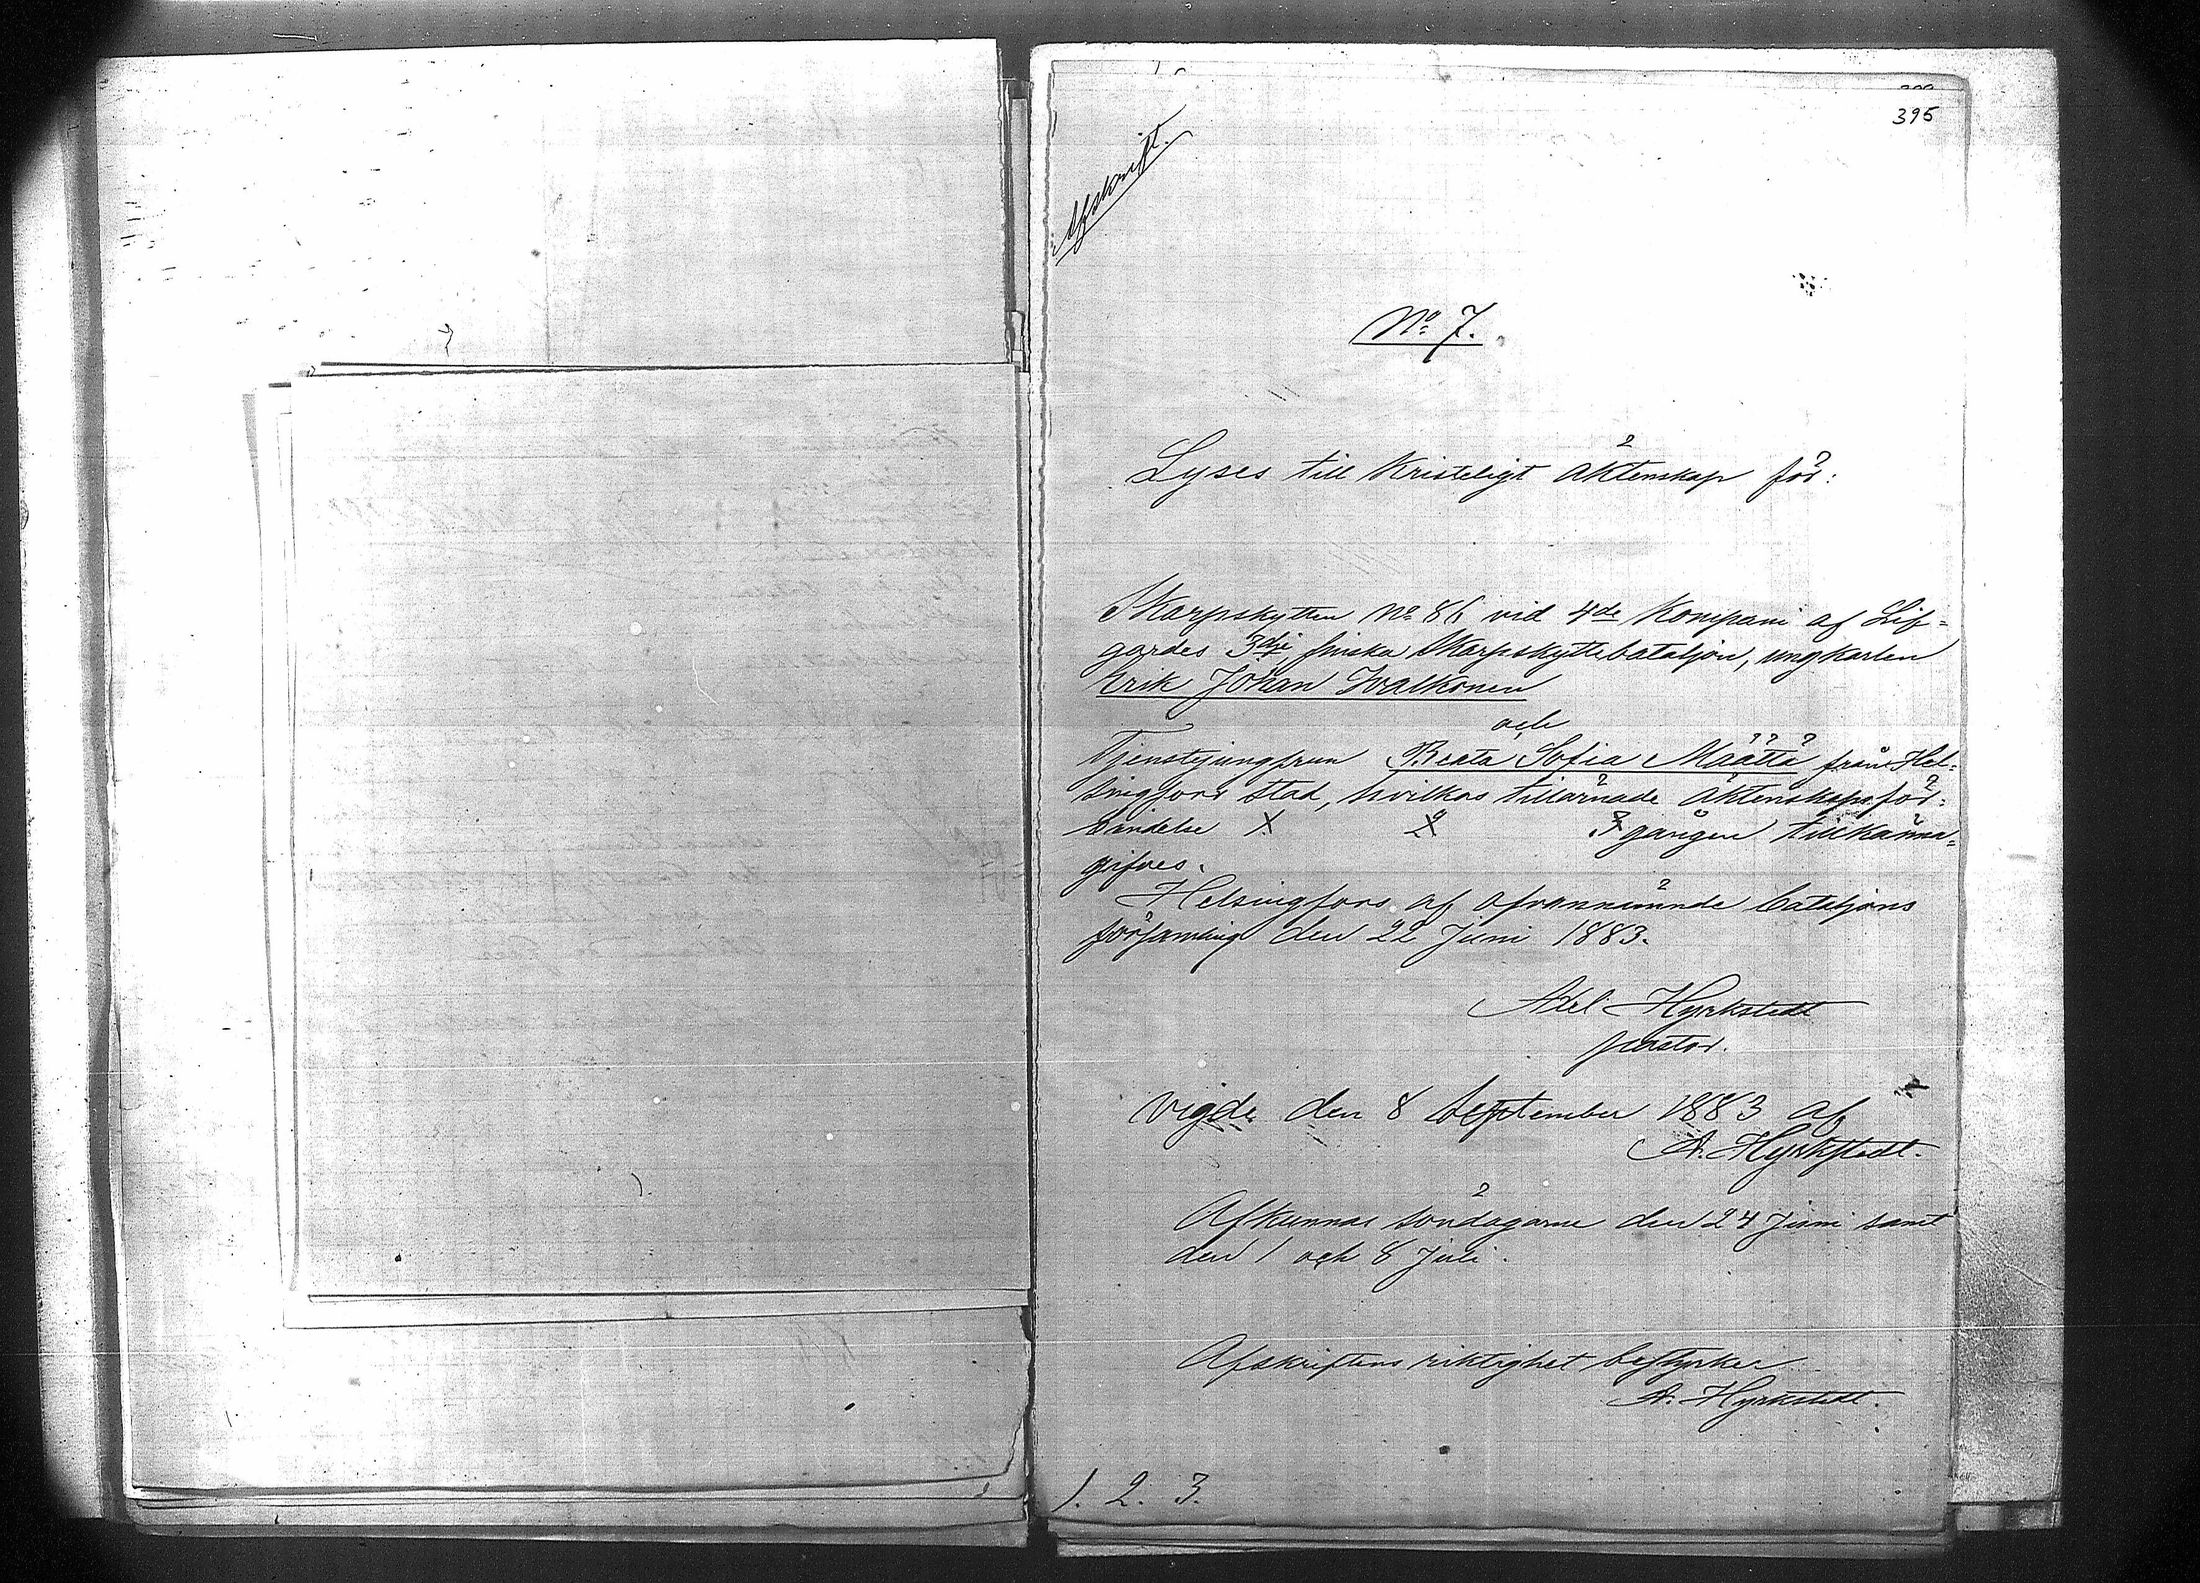 395
Afskrift.
No 7.
Lyses till Kristeligt äktenskap för:
Skarpskytten No 86 vid 4de Kompani af Lif-
gardes 3dje finska Skarpskyttebataljon, ungkarlen
Erik Johan Ivalkonen
och
Tjenstejungfrun Beata Sofia Määttä från Hel-
singfors stad, hvilkas tillärnade äktenskapsför-
bindelse 1. 2 3 gången tillkänna-
gifves.
Helsingfors af ofvannämnde bataljons
församling den 22 Juni 1883.
Axel Hyrkstedt
pastor.
Vigde den 8 September 1883 af
A. Hyrkstedt.
Afkunnas söndagarne den 24 Juni samt
den 1 och 8 Juli.
Afskriftens riktighet bestyrker
A. Hyrkstedt.
1. 2. 3.